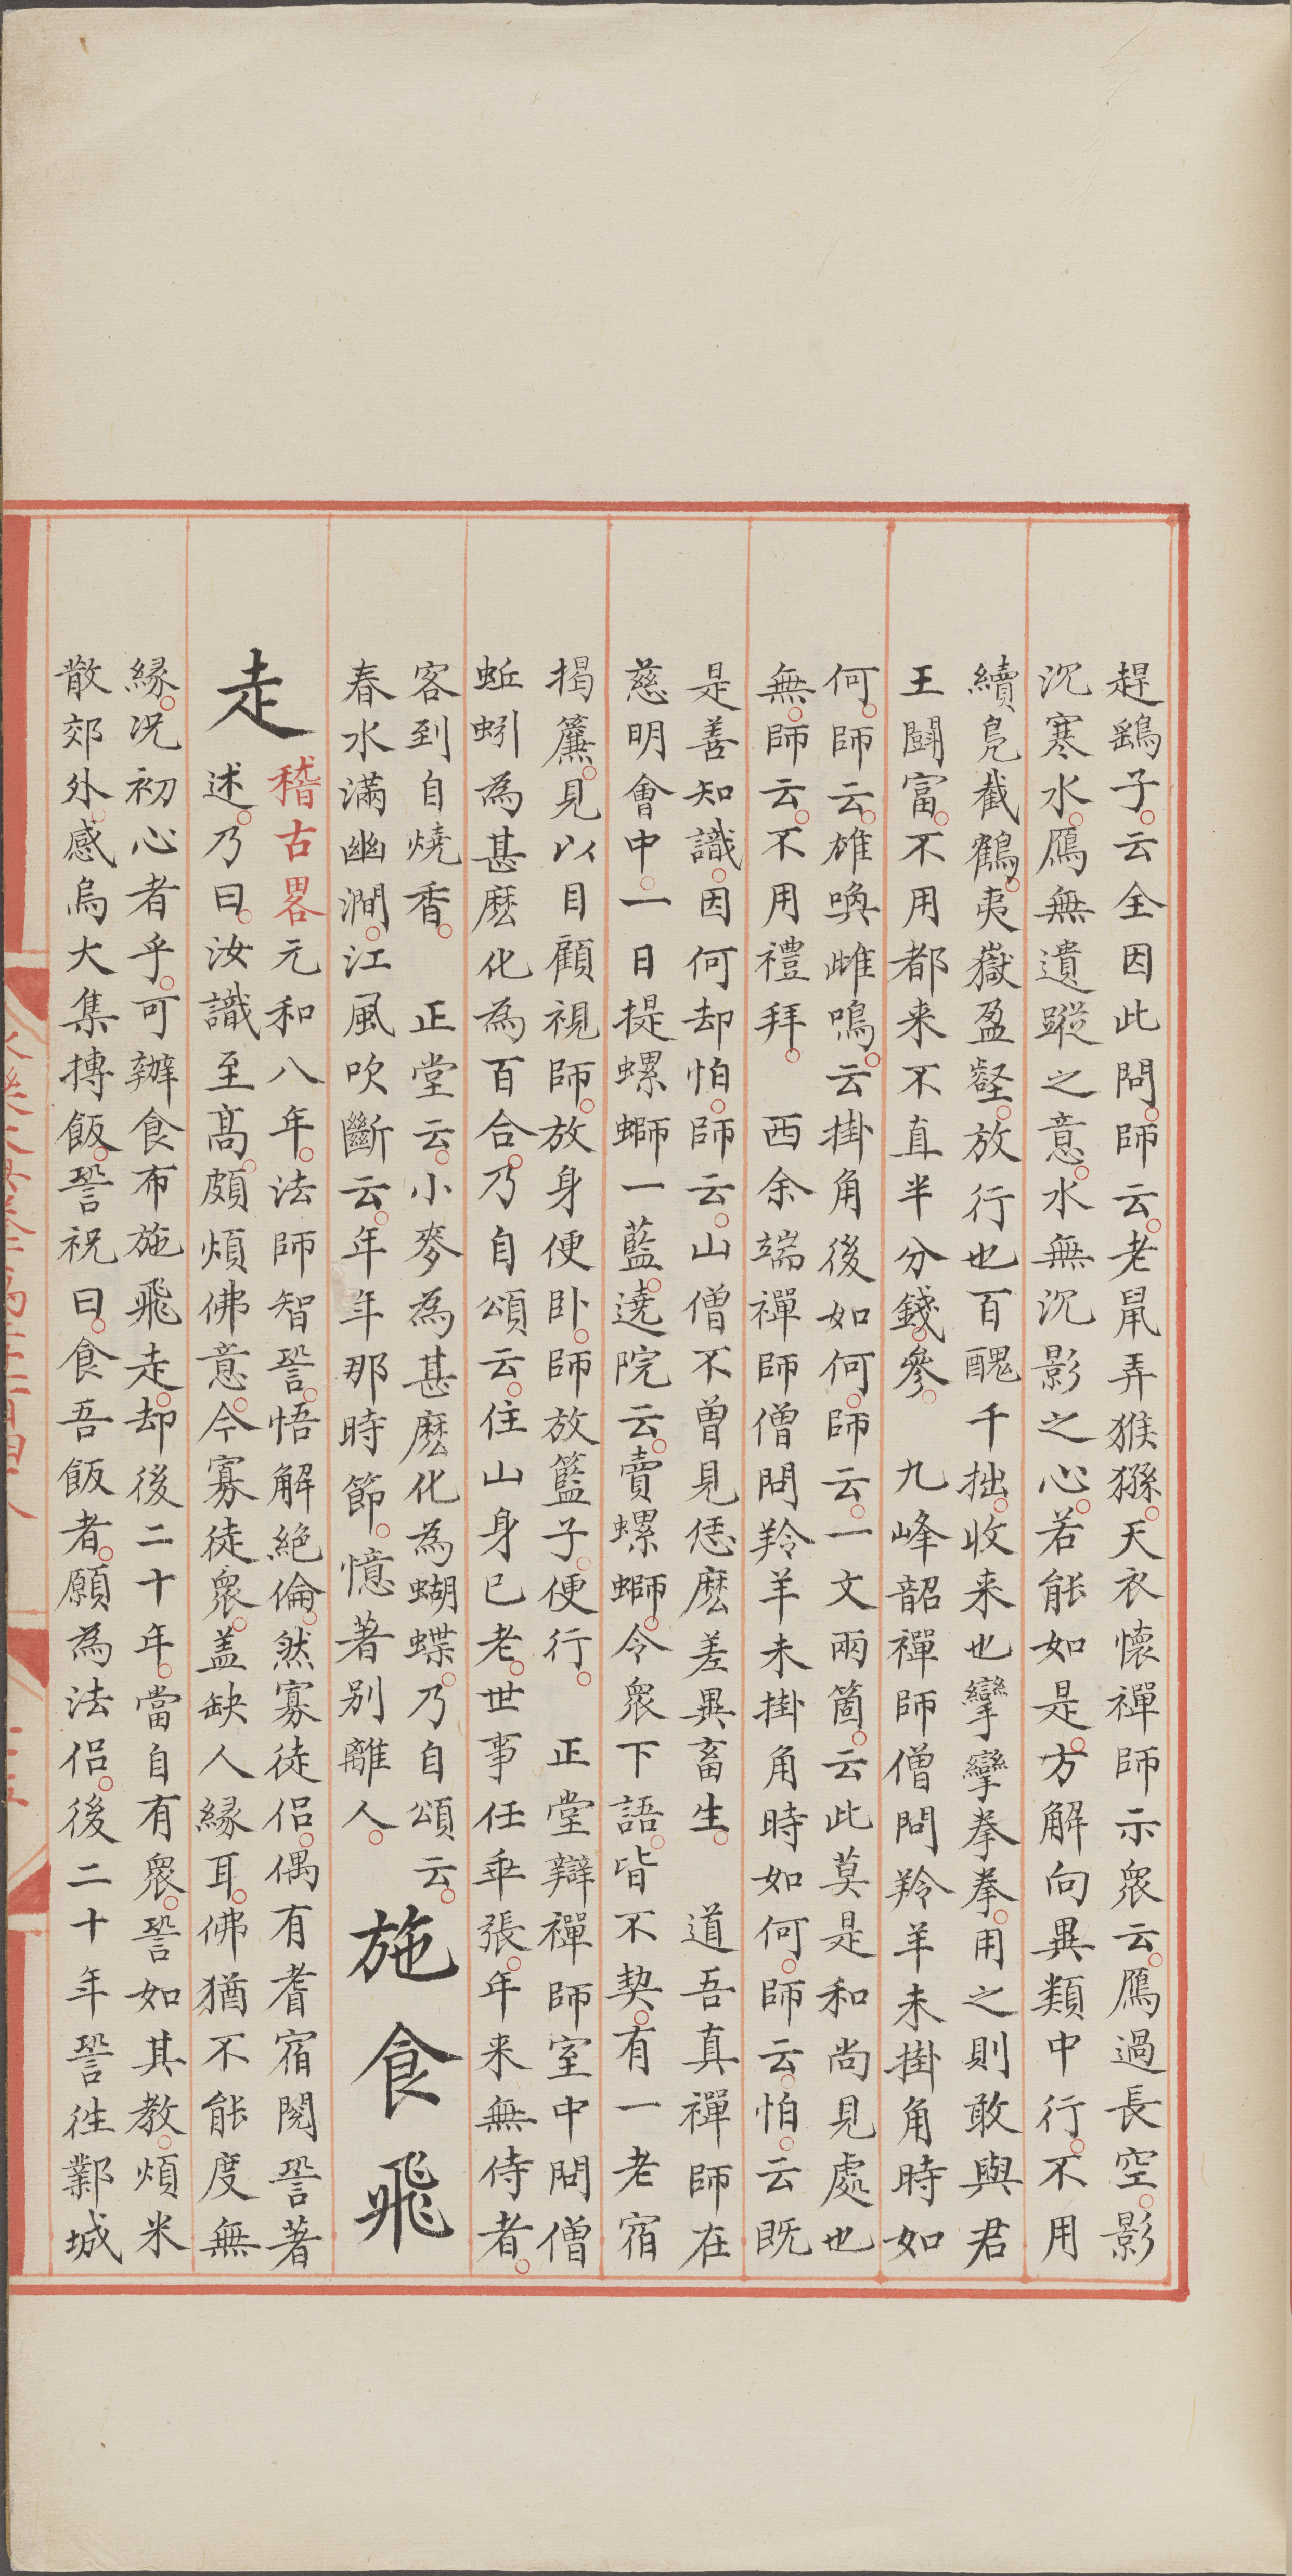 趕鷂子云全因此問師云老鼠弄猴猻天衣懷禪師示衆云鴈過長空影
沉寒水鴈無遺蹤之意水無沉影之心若能如是方解向異類中行不用
續鳬截鶴夷嶽盈壑放行也百醜千拙收来也攣攣拳拳用之則敢與君
王鬪富不用都来不直半分錢參 九峰韶禪師僧問羚羊未掛角時如
何師云雄喚雌鳴云掛角後如何師云一文兩箇云此莫是和尚見處也
無師云不用禮拜 西余端禪師僧問羚羊未掛角時如何師云怕云既
是善知識因何却怕師云山僧不曽見恁麽差異畜生 道吾真禪師在
慈明會中一日提螺螄一藍遶院云賣螺螄令衆下語皆不契有一老宿
揭簾見以目顧視師放身便卧師放籃子便行 正堂辯禪師室中問僧
蚯蚓為甚麽化為百合乃自頌云住山身已老世事任乖張年来無侍者
客到自燒香 正堂云小麥為甚麽化為蝴蝶乃自頌云
春水滿幽澗江風吹斷云年年那時節憶著别離人
施食飛
走
稽古畧元和八年法師智䛐悟解絶倫然寡徒侣偶有耆宿閱䛐著
述乃曰汝識至髙頗煩佛意今寡徒衆盖缺人緣耳佛猶不能度無
緣况初心者乎可辦食布施飛走却後二十年當自有衆䛐如其教煩米
散郊外感烏大集摶飯䛐祝曰食吾飯者願為法侣後二十年䛐徃鄴城